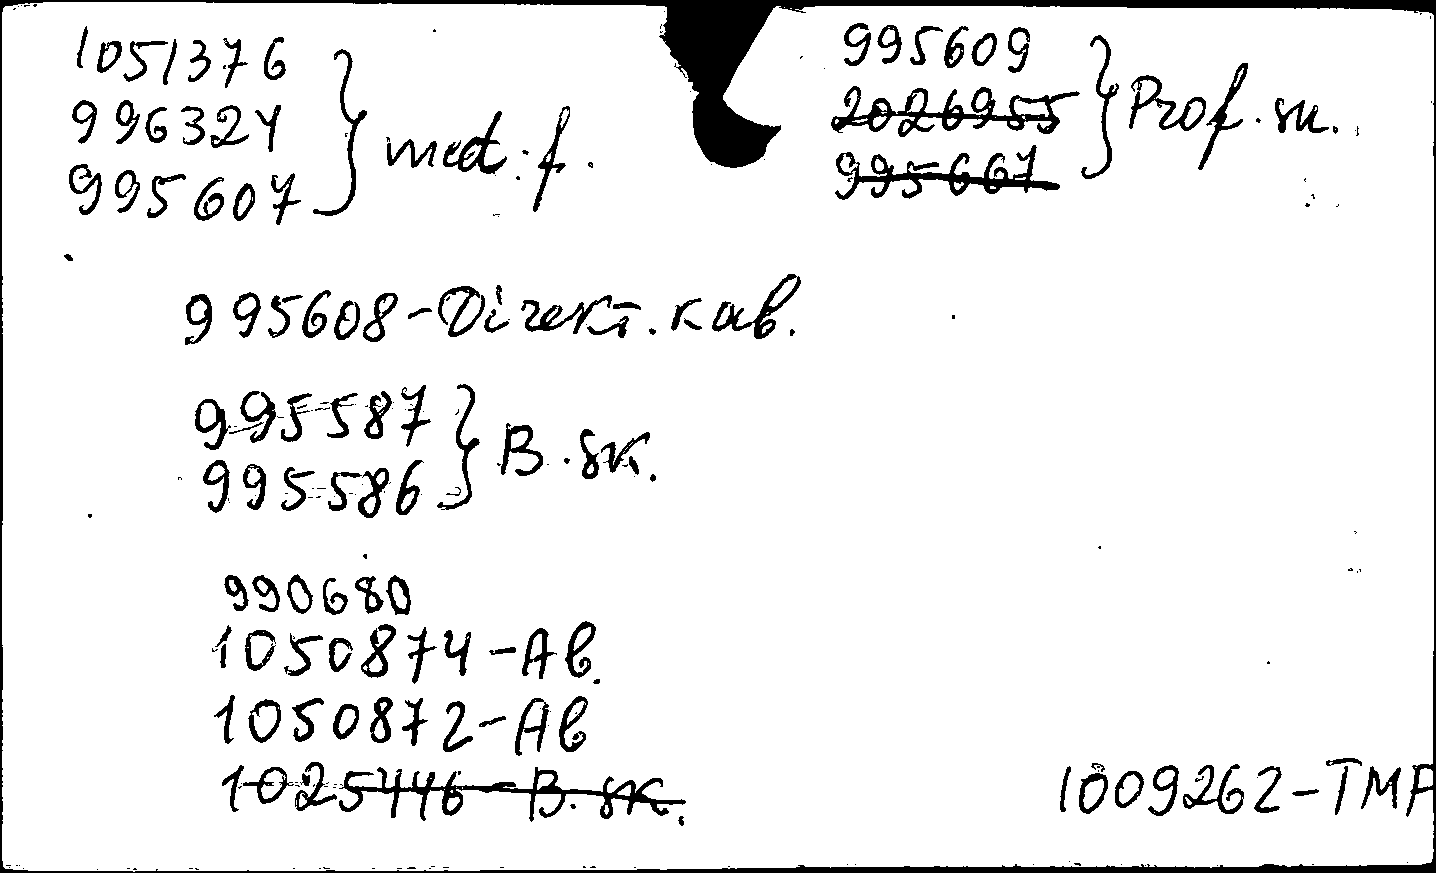 1051376
996324
995607
med. f.
995609
2026955
995667
Prof. sk.
995608-Direkt. kab.
995587
995586
B. sk.
990680
1050874-Ab.
1050872-Ab
1025446-B. sk.
1009262-TMP